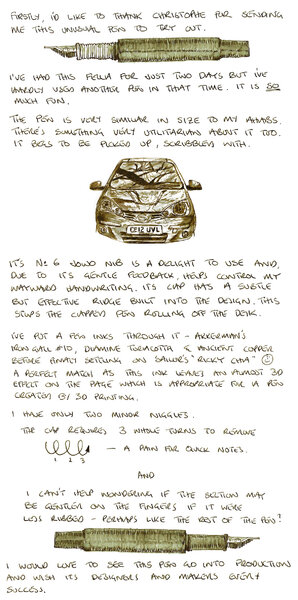 FIRSTLY, I'D LIKE TO THANK CHRISTOPHE FOR SENDING
ME THIS UNUSUAL PEN TO TRY OUT.
I'VE HAD THIS FELLA FOR JUST TWO DAYS BUT I'VE
HARDLY USED ANOTHER PEN IN THAT TIME. IT IS SO
MUCH FUN.
THE PEN IS VERY SIMILAR IN SIZE TO MY
THERE'S SOMETHING VERY UTILITARIAN ABOUT IT TOO.
IT BEGS TO BE PICKED UP, SCRIBBLED WITH.
CE12 UVL
IT'S Nº 6 JOWO NIB IS A DELIGHT TO USE AND,
DUE TO ITS GENTLE FEEDBACK, HELPS CONTROL MY
WAYWARD HANDWRITING. ITS CAP HAS A SUBTLE
BUT EFFECTIVE RIDGE BUILT INTO THE DESIGN. THIS
STOPS THE CAPPED PEN ROLLING OFF THE DESK.
I'VE PUT A FEW INKS THROUGH IT - AKKERMAN'S
IRON GALL #10, DIAMINE TERRACOTTA & ANCIENT COPPER
BEFORE FINALLY SETTLING ON SAILOR'S "RICKY CHA"
A PERFECT MATCH AS THIS INK LEAVES AN ALMOST 3D
EFFECT ON THE PAGE WHICH IS APPROPRIATE FOR A PEN
CREATED BY 3D PRINTING.
I HAVE ONLY TWO MINOR NIGGLES.
THE CAP REQUIRES 3 WHOLE TURNS TO REMOVE
1 2 3 - A PAIN FOR QUICK NOTES.
AND
I CAN'T HELP WONDERING IF THE SECTION MAY
BE GENTLER ON THE FINGERS IF IT WERE
LESS RIBBED - PERHAPS LIKE THE REST OF THE PEN?
I WOULD LOVE TO SEE THIS PEN GO INTO PRODUCTION
AND WISH ITS DESIGNERS AND MAKERS EVERY
SUCCESS.